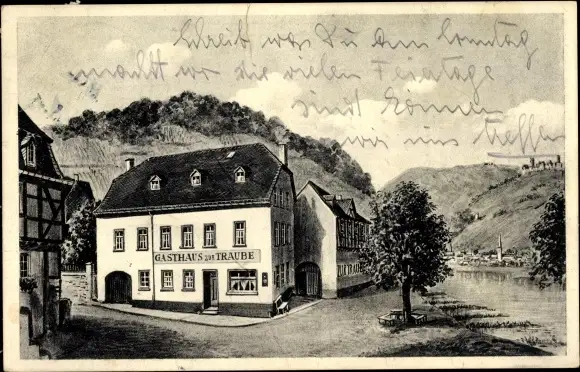 Schreib was Du am Sonntag
machst wo die vielen Feiertage
sindt können
wir uns treffen
GASTHAUS zur TRAUBE